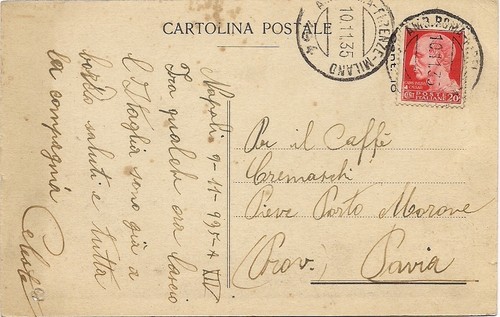 CARTOLINA POSTALE
10.11.35
FIRENZE-MILANO
ROMA
10.11.35
POSTE ITALIANE
20
Napoli 9-11-935 XIV
Fra qualche ora lascio
l'Italia sono già a
bordo saluti e tutta
la compagnia
Celeste
Per il Caffè
Cremaschi
Pieve Porto Morone
(Prov. Pavia